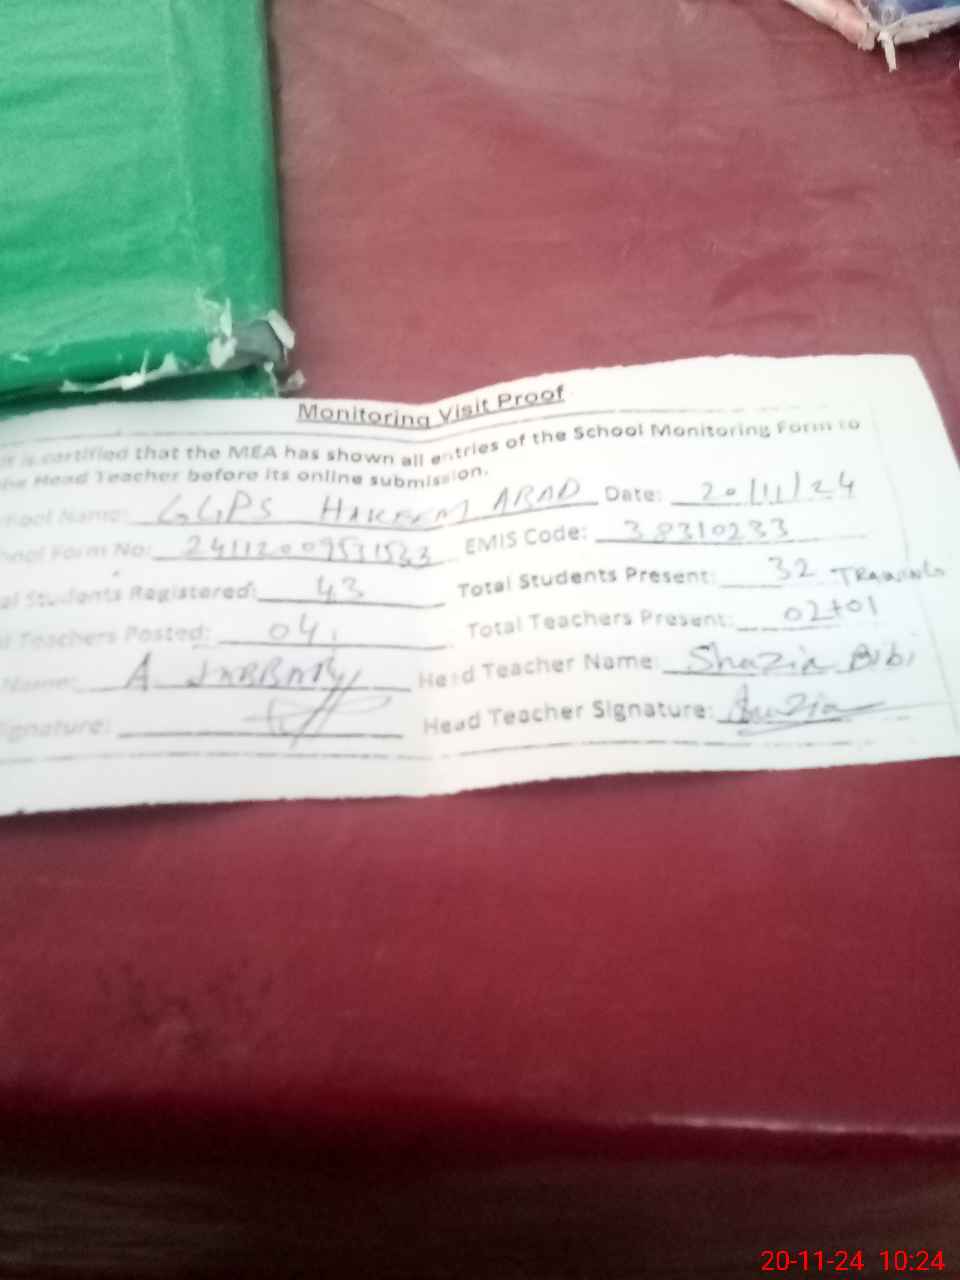 Monitoring Visit Proof
It is certified that the MEA has shown all entries of the School Monitoring Form to
the Head Teacher before its online submission.
School Name: GGPS HAKEEM ARAD Date: 20/11/24
School Form No: EMIS Code: 38310233
Total Students Registered: 43 Total Students Present: 32 TRAINING
Total Teachers Posted: 04 Total Teachers Present: 02+01
Name: A Head Teacher Name: Shazia Bibi
Signature: Head Teacher Signature: Shazia
20-11-24 10:24